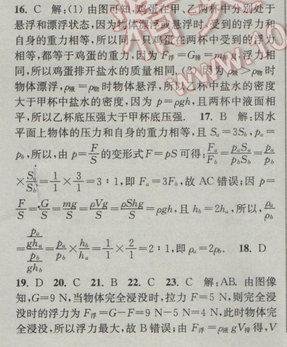 16. C 解:(1)由图可知,鸡蛋在甲、乙两杯中分别处于
悬浮和漂浮状态,因为物体漂浮或悬浮时,受到的浮力和
自身的重力相等,所以同一只鸡蛋在两杯中受到的浮力
相等,都等于鸡蛋的重力,因为 F浮=G排=m排g,浮力相
同,所以鸡蛋排开盐水的质量相同。
物体漂浮,ρ液=ρ物时物体悬浮,所以乙杯中盐水的密度
大于甲杯中盐水的密度,因为 p=ρgh,且两杯中液面相
平,所以乙杯底压强大于甲杯底压强. 17. B 解:因水
平面上物体的压力和自身的重力相等,且 Sa=3Sb,pa=
pb,所以,由 p=F/S 的变形式 F=pS 可得:Fa/Fb=paSa/pbSb=pa/pb
×Sa/Sb=1/1×3/1=3∶1,即 Fa=3Fb,故 AC 错误;因 p=
F/S=G/S=mg/S=ρVg/S=ρShg/S=ρgh,且 hb=2ha,所以,ρa/ρb
=(pa/gha)/(pb/ghb)=pa/pb×hb/ha=1/1×2/1=2∶1,即 ρa=2ρb. 18. D
19. D 20. C 21. B 22. C 23. C 解:AB. 由图像
知,G=9 N,当物体完全浸没时,拉力 F=5 N,则完全浸
没时的浮力为 F浮=G-F=9 N-5 N=4 N,此时物体完
全浸没,所以浮力最大,故 B 错误;由 F浮=ρ液gV排得,V